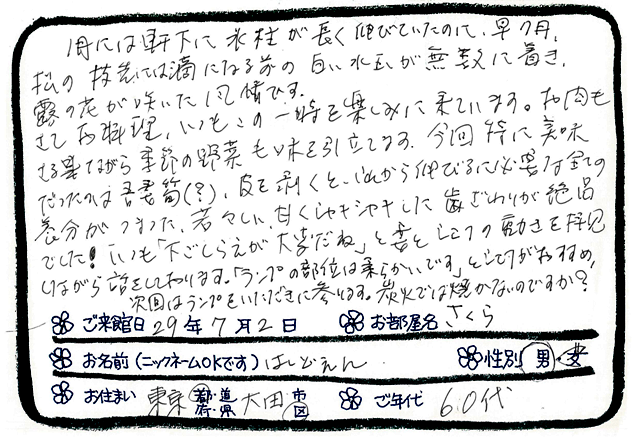 1月には軒下に氷柱が長く伸びていたのに、早7月、
松の枝先には滴になる前の白い水玉が無数に着き、
露の花が咲いた風情です。
さてお料理、いつもこの一時を楽しみに来ています。お肉も
さる事ながら季節の野菜も味を引立てます。今回特に美味
だったのは吾妻筍(?)、皮を剥くと、これから伸びるに必要な全ての
養分がつまった、若々しい、甘くシャキシャキした歯ざわりが絶品
でした!いつも「下ごしらえが大変だね」と妻とシェフの動きを拝見
しながら話をしております。「ランプの部位は柔らかいです」とシェフがおすすめ、
次回はランプをいただきに参ります。炭火では焼かないのですか?
ご来館日 29年7月2日 お部屋名 さくら
お名前(ニックネームOKです) はしどえん 性別 男・女
お住まい 東京 都道府県 大田 市区 ご年代 60代